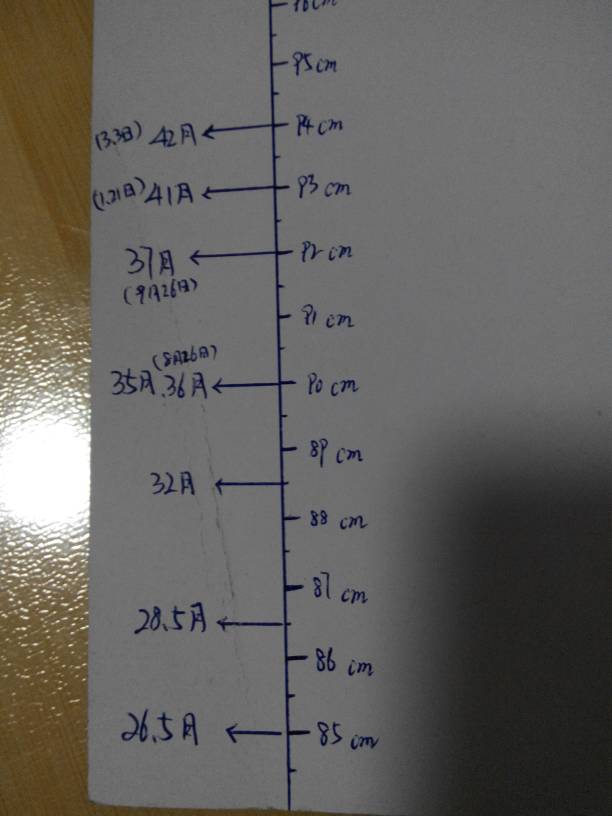 96cm
95cm
(3.3日) 42月 94cm
(1.21日) 41月 93cm
37月 92cm
(9月26日)
91cm
(8月26日)
35月.36月 90cm
89cm
32月
88cm
87cm
28.5月
86cm
26.5月 85cm